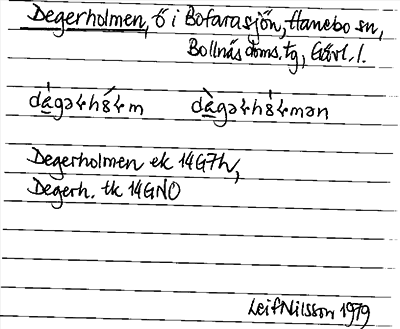 Degerholmen, ö i Bofarasjön, Hanebo sn,
Bollnäs doms.tg, Gävl. l.
Degerholmen ek 14G7h,
Degerh. tk 14GNO
Leif Nilsson 1979